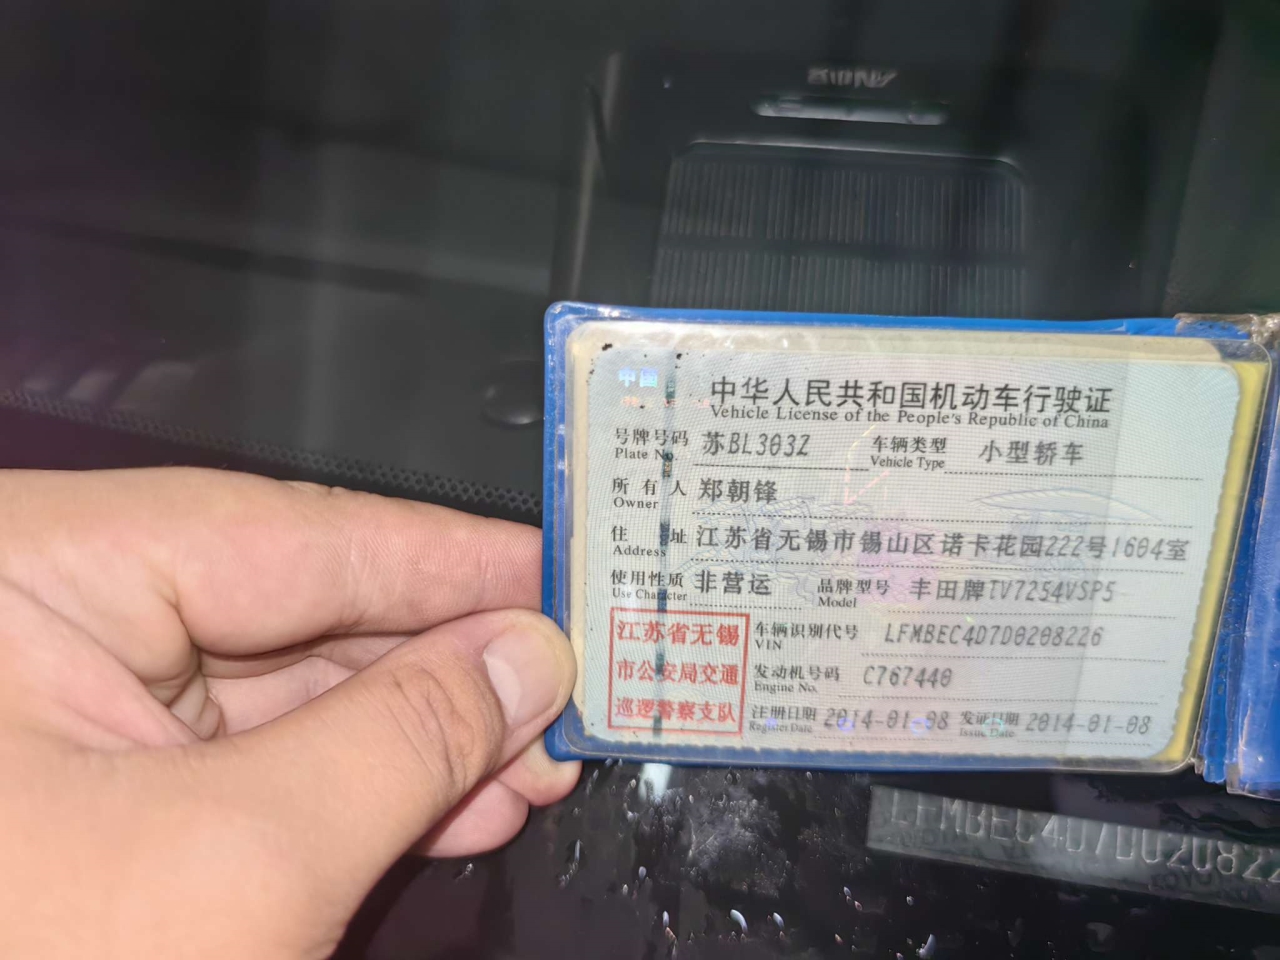 中国
中华人民共和国机动车行驶证
Vehicle License of the People's Republic of China
号牌号码 苏BL303Z 车辆类型 小型轿车
Plate No. Vehicle Type
所有人 郑朝锋
Owner
住址 江苏省无锡市锡山区诺卡花园222号1604室
Address
使用性质 非营运 品牌型号 丰田牌TV7254VSP5
Use Character Model
江苏省无锡
市公安局交通
巡逻警察支队
车辆识别代号 LFMBEC4D7D0208226
VIN
发动机号码 C767440
Engine No.
注册日期 2014-01-08 发证日期 2014-01-08
Register Date Issue Date
LFMBEC4D7D020822